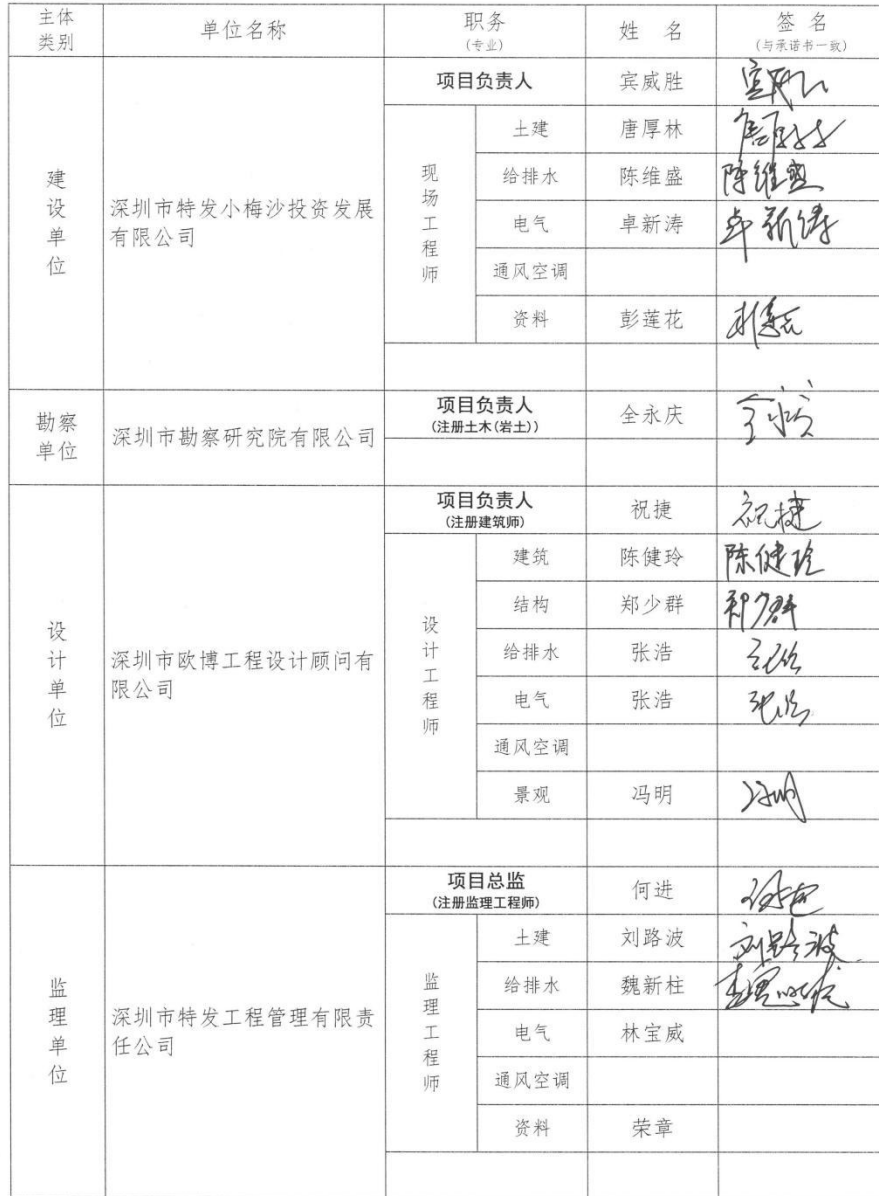 主体
类别
单位名称
职务
(专业)
姓 名
签 名
(与承诺书一致)
建设单位
深圳市特发小梅沙投资发展
有限公司
项目负责人
宾威胜
现场工程师
土建
唐厚林
给排水
陈维盛
陈维盛
电气
卓新涛
卓新涛
通风空调
资料
彭莲花
勘察
单位
深圳市勘察研究院有限公司
项目负责人
(注册土木(岩土))
全永庆
全永庆
设计单位
深圳市欧博工程设计顾问有
限公司
项目负责人
(注册建筑师)
祝捷
祝捷
设计工程师
建筑
陈健玲
陈健玲
结构
郑少群
郑少群
给排水
张浩
电气
张浩
张浩
通风空调
景观
冯明
冯明
监理单位
深圳市特发工程管理有限责
任公司
项目总监
(注册监理工程师)
何进
监理工程师
土建
刘路波
刘路波
给排水
魏新柱
电气
林宝威
通风空调
资料
荣章